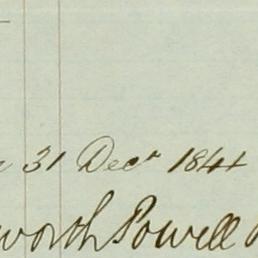 31 Decr 1841
worth Powell